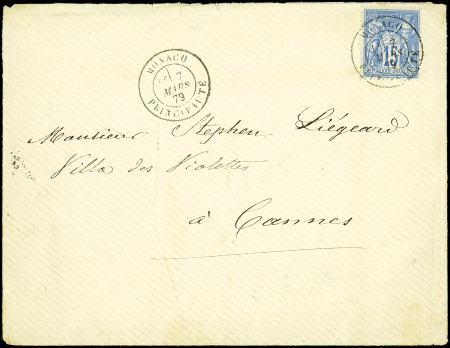 MONACO
7
MARS
79
PRINCIPAUTÉ
MONACO
15
Monsieur Stephen Liégeard
Villa des Violettes
à Cannes